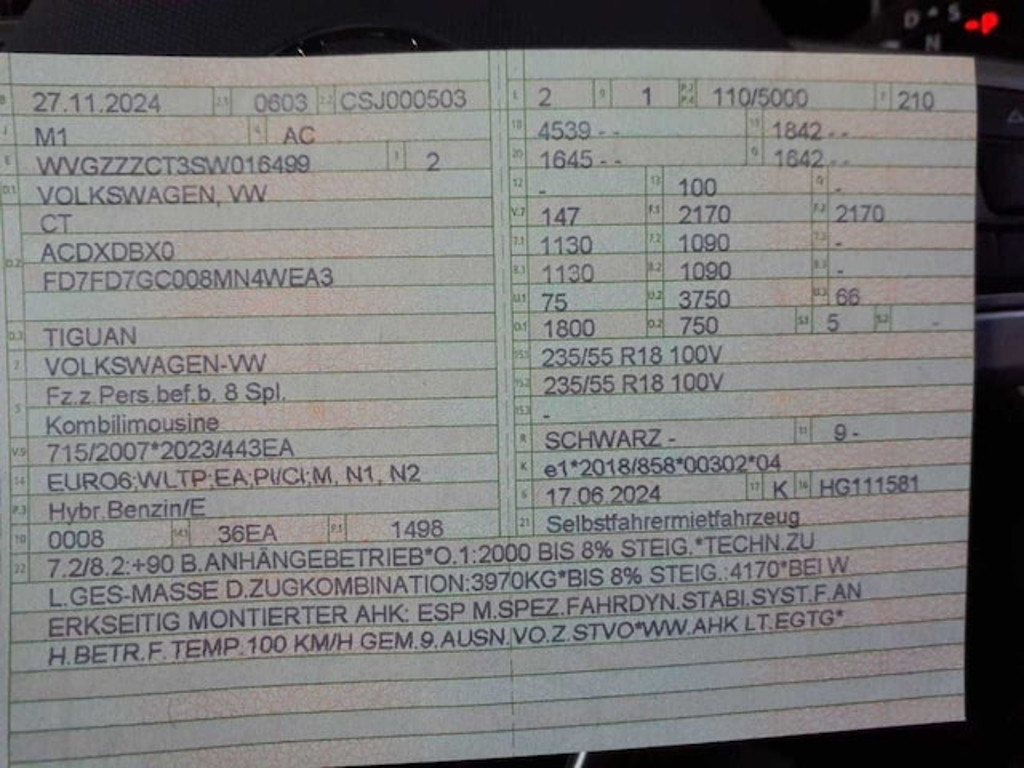 D S P
N
B 27.11.2024 2.1 0603 2.2 CSJ000503
J M1 4 AC
E WVGZZZCT3SW016499 3 2
D.1 VOLKSWAGEN, VW
CT
D.2 ACDXDBX0
FD7FD7GC008MN4WEA3
D.3 TIGUAN
2 VOLKSWAGEN-VW
5 Fz.z.Pers.bef.b. 8 Spl.
Kombilimousine
V.9 715/2007*2023/443EA
14 EURO6;WLTP;EA;PI/CI;M, N1, N2
P.3 Hybr.Benzin/E
10 0008 14.1 36EA P.1 1498
L 2 9 1 P.2 P.4 110/5000 T 210
18 4539 - - 19 1842 - -
20 1645 - - G 1642 - -
12 - 13 100 Q -
V.7 147 F.1 2170 F.2 2170
7.1 1130 7.2 1090 7.3 -
8.1 1130 8.2 1090 8.3 -
U.1 75 U.2 3750 U.3 66
O.1 1800 O.2 750 S.1 5 S.2 -
15.1 235/55 R18 100V
15.2 235/55 R18 100V
15.3 -
R SCHWARZ - 11 9 -
K e1*2018/858*00302*04
6 17.06.2024 17 K 16 HG111581
21 Selbstfahrermietfahrzeug
22 7.2/8.2:+90 B.ANHÄNGEBETRIEB*O.1:2000 BIS 8% STEIG.*TECHN.ZU
L.GES-MASSE D.ZUGKOMBINATION:3970KG*BIS 8% STEIG.:4170*BEI W
ERKSEITIG MONTIERTER AHK: ESP M.SPEZ.FAHRDYN.STABI.SYST.F.AN
H.BETR.F.TEMP.100 KM/H GEM.9.AUSN.VO.Z.STVO*WW.AHK LT.EGTG*